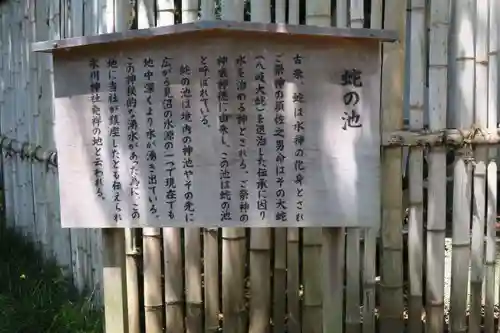 蛇の池
古来、蛇は水神の化身とされ
ご祭神の須佐之男命はその大蛇
（八岐大蛇）を退治した伝承に因り
水を治める神とされる。ご祭神の
御霊神格に由来し、この池は蛇の池
と呼ばれている。
蛇の池は境内の神池やその先に
広がる見沼の水源の一つで現在でも
地中深くより水が湧き出ている。
この神秘的な湧水があった為に、この
地に当社が鎮座したとも伝えられ
氷川神社発祥の地と云われる。